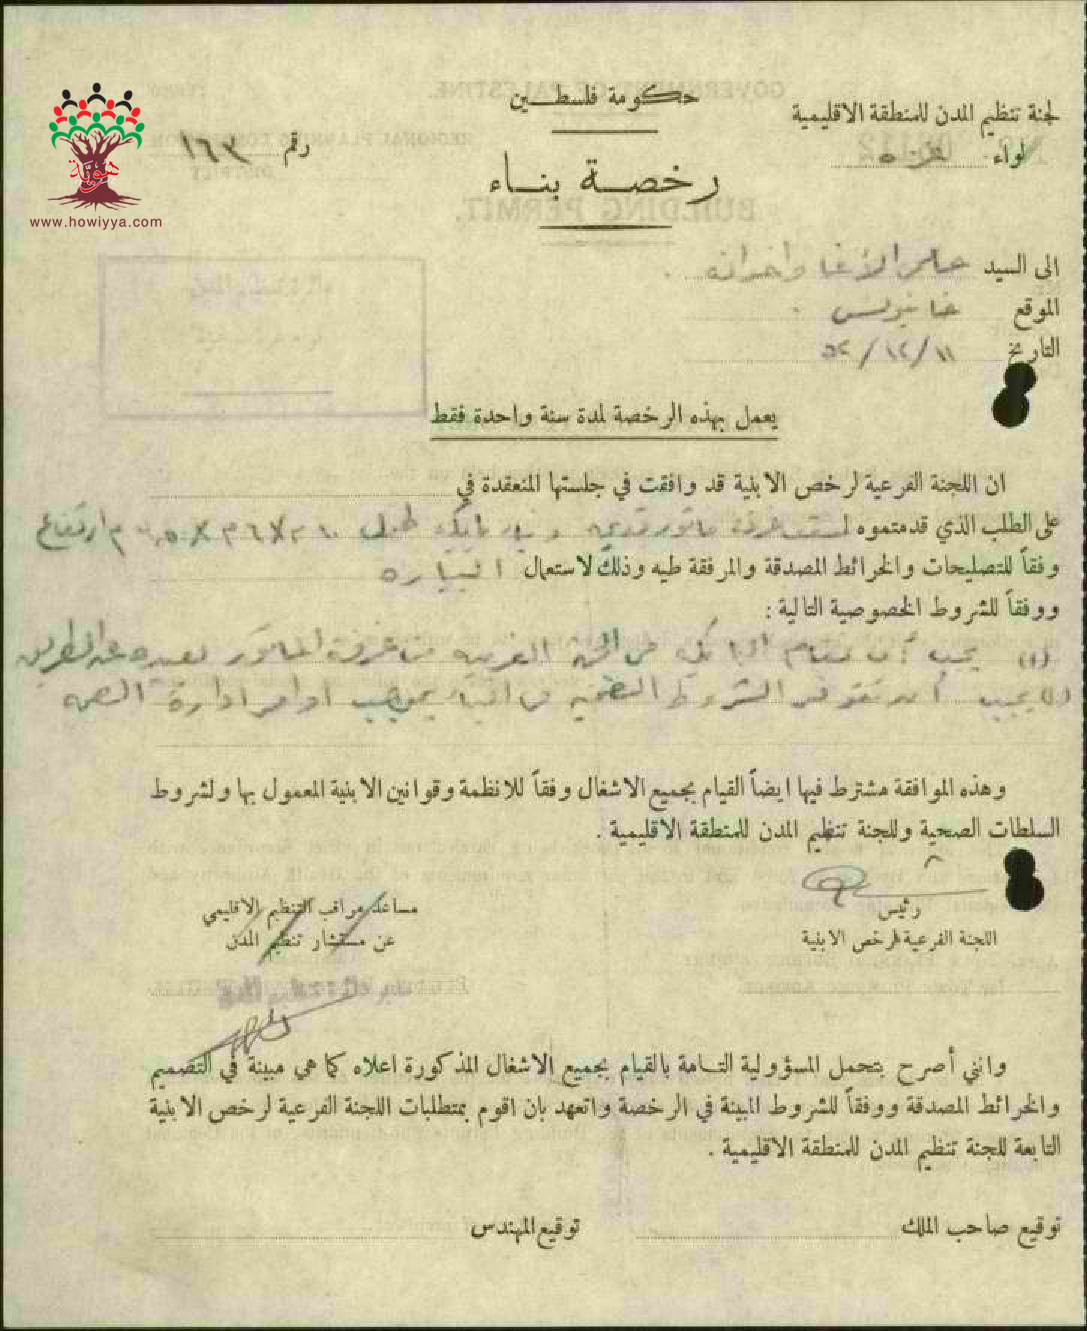 حكومة فلسطين
لجنة تنظيم المدن للمنطقة الاقليمية
لواء غزة
رقم ١٦٣
رخصة بناء
هوية
www.howiyya.com
الى السيد حلمي الأغا واخوانه
الموقع خانيونس
التاريخ ١١/١٢/٥٢
يعمل بهذه الرخصة لمدة سنة واحدة فقط
ان اللجنة الفرعية لرخص الابنية قد وافقت في جلستها المنعقدة في
على الطلب الذي قدمتموه لسقف غرفة ماتور م ارتفاع
وفقاً للتصليحات والخرائط المصدقة والمرفقة طيه وذلك لاستعمال البياره
ووفقاً للشروط الخصوصية التالية :
(١) يجب أن يقام من غرفة الماتور بعيده عن الطريق
(٢) يجب أن تتوفر الشروط الصحية بموجب اوامر ادارة الصحه
وهذه الموافقة مشترط فيها ايضاً القيام بجميع الاشغال وفقاً للانظمة وقوانين الابنية المعمول بها ولشروط
السلطات الصحية وللجنة تنظيم المدن للمنطقة الاقليمية .
رئيس
اللجنة الفرعية لرخص الابنية
مساعد مراقب التنظيم الاقليمي
عن مستشار تنظيم المدن
وانني أصرح بتحمل المسؤولية التامة بالقيام بجميع الاشغال المذكورة اعلاه كما هي مبينة في التصميم
والخرائط المصدقة ووفقاً للشروط المبينة في الرخصة واتعهد بان اقوم بمتطلبات اللجنة الفرعية لرخص الابنية
التابعة للجنة تنظيم المدن للمنطقة الاقليمية .
توقيع صاحب الملك
توقيع المهندس